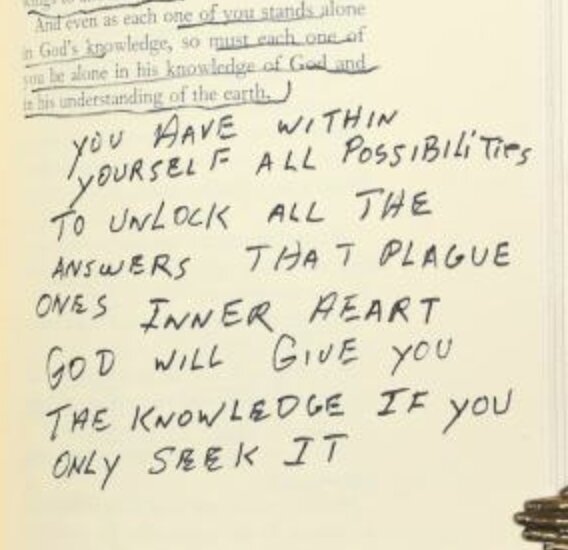 And even as each one of you stands alone
in God's knowledge, so must each one of
you be alone in his knowledge of God and
in his understanding of the earth.
YOU HAVE WITHIN
YOURSELF ALL POSSIBILITIES
TO UNLOCK ALL THE
ANSWERS THAT PLAGUE
ONES INNER HEART
GOD WILL GIVE YOU
THE KNOWLEDGE IF YOU
ONLY SEEK IT